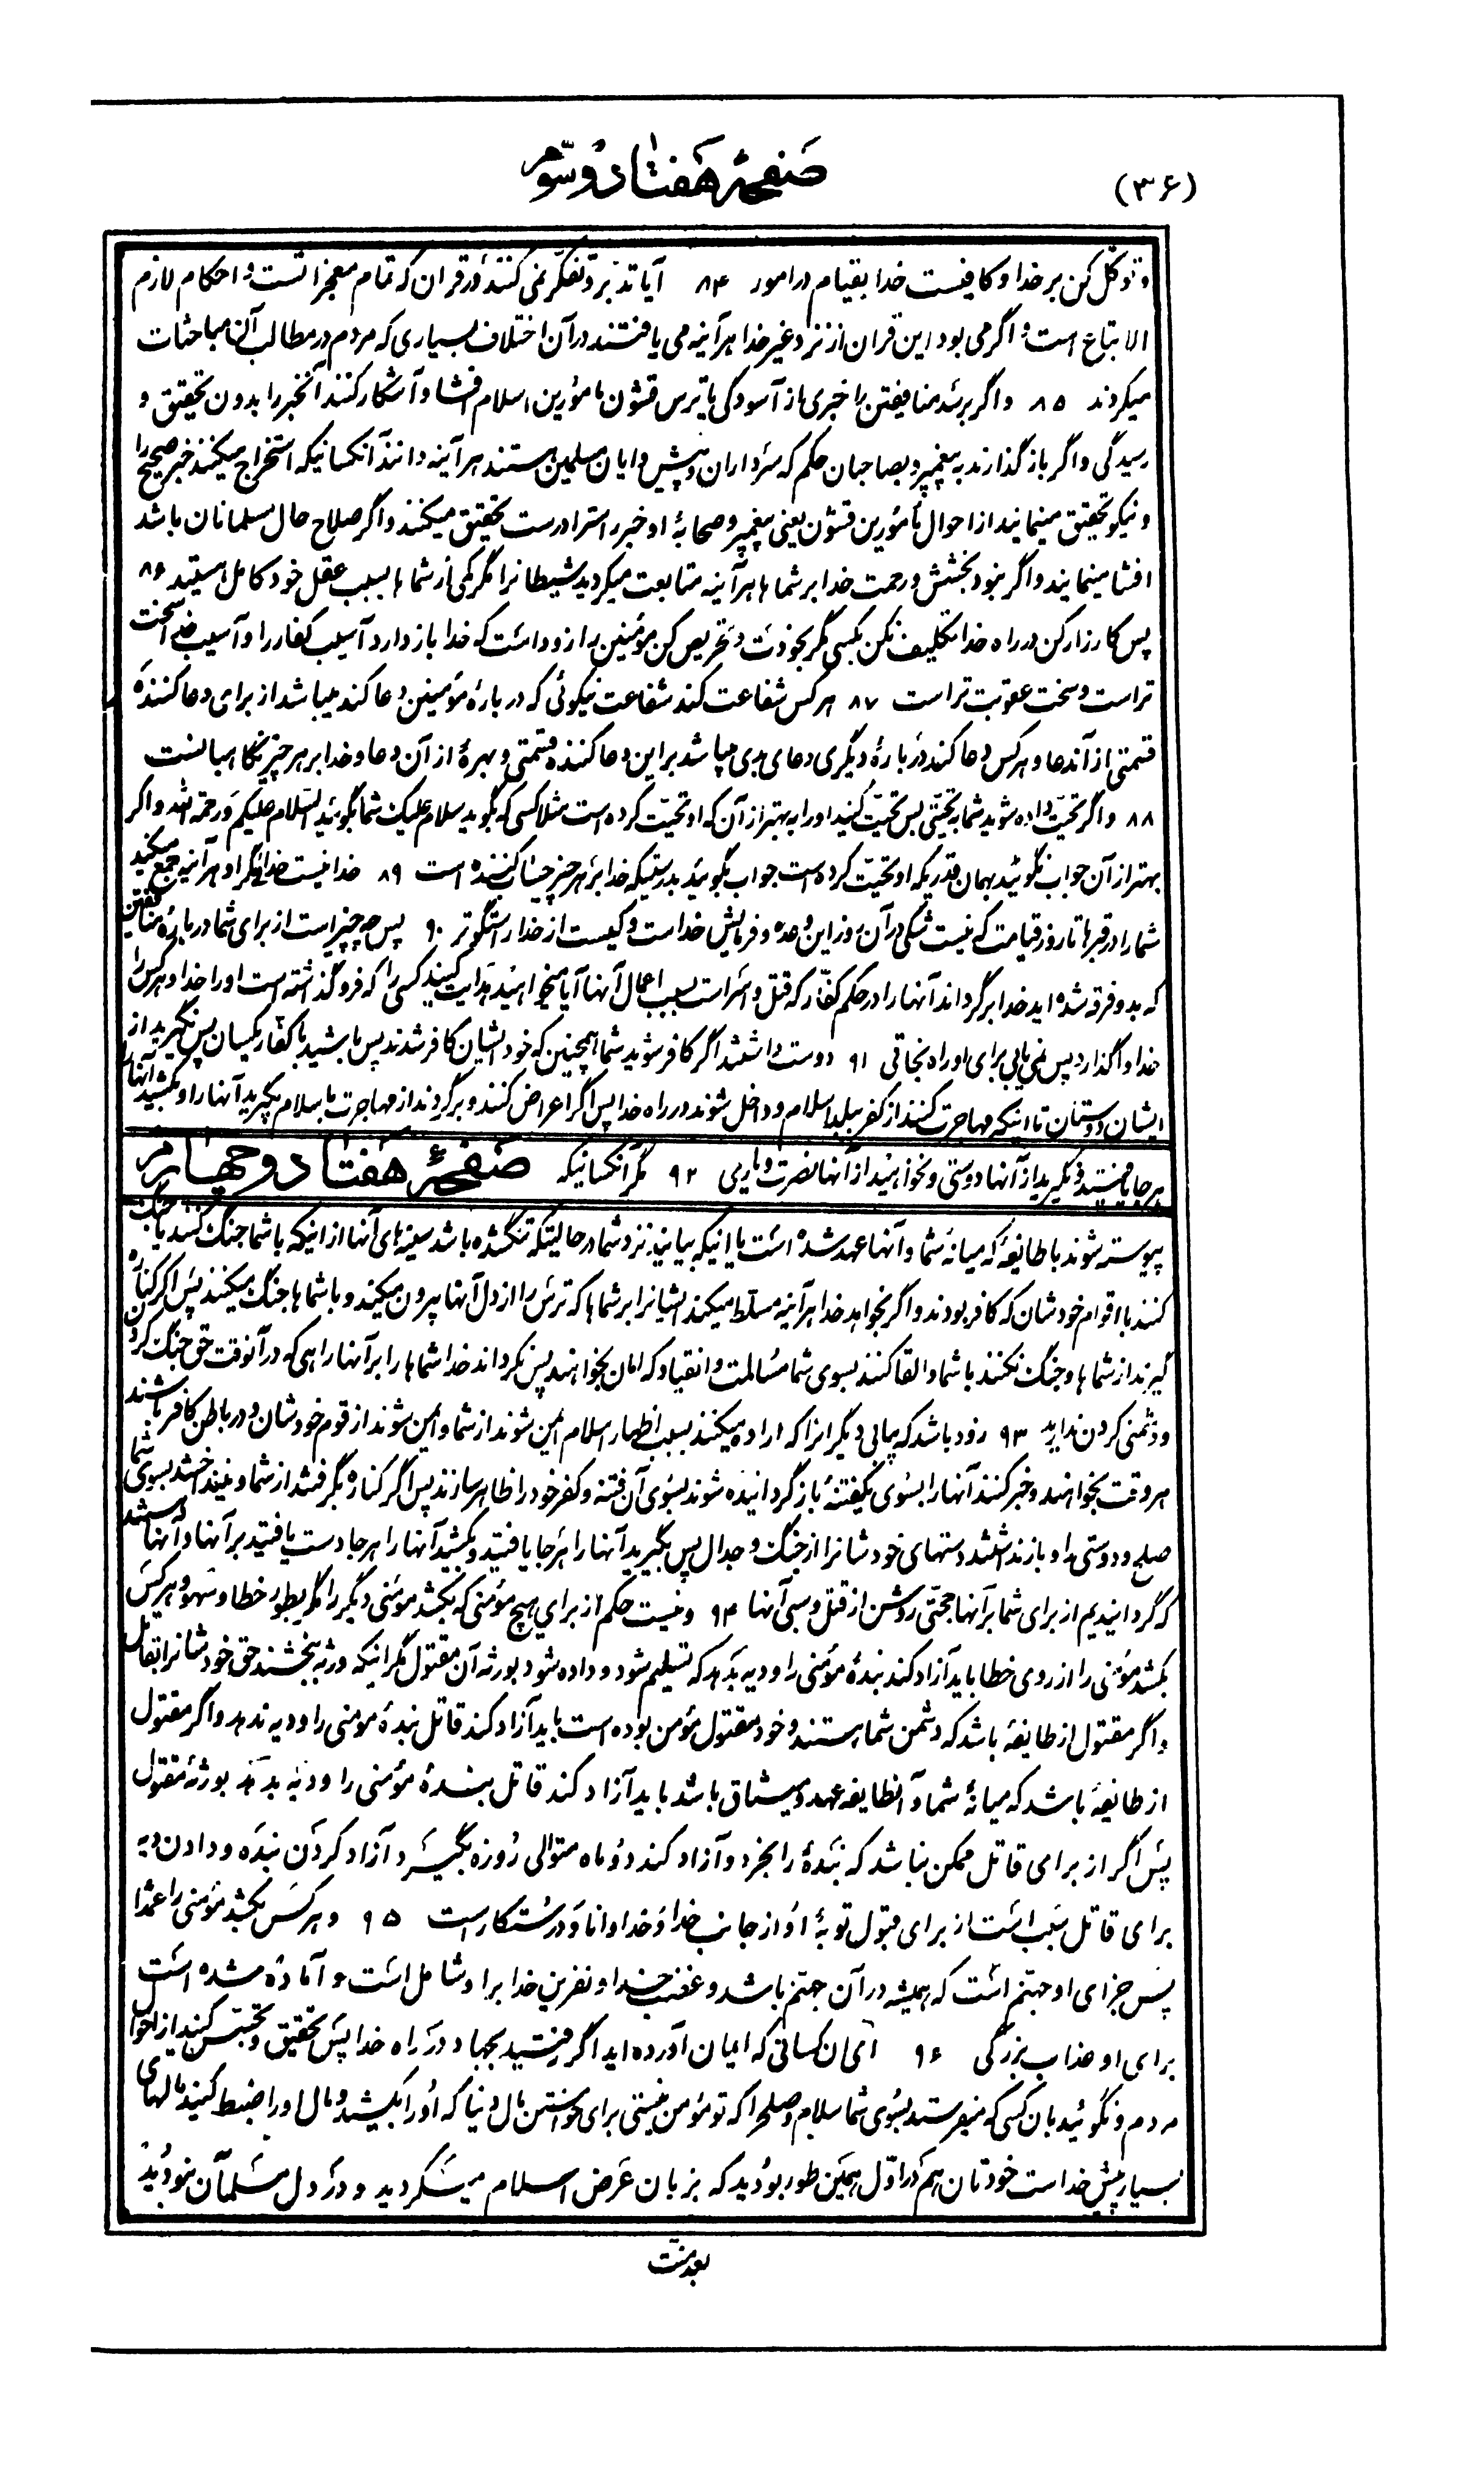 (۳۶)
صفحهٔ هفتاد و سوم
و توکل کن بر خدا و کافیست خدا بقیام در امور ۸۴ آیا تدبر و تفکر نمی کنند در قران که تمام معجز است و احکام لازم
الاتباع است و اگر می بود این قران از نزد غیر خدا هر آینه می یافتند در آن اختلاف بسیاری که مردم در مطالب آن مباحثات
میکردند ۸۵ و اگر برسد منافقین را خبری از آسودگی یا ترس قشون مامورین اسلام افشا و آشکار کنند آنخبر را بدون تحقیق و
رسیدگی و اگر باز گذارند به پیغمبر و بصاحبان حکم که سرداران و پیش وایان مسلمین هستند هر آینه دانند آنکسانیکه استخراج میکنند خبر صحیح را
و نیکو تحقیق مینمایند از احوال مأمورین قشون یعنی پیغمبر و صحابهٔ او خبر راست را درست تحقیق میکنند و اگر صلاح حال مسلمانان باشد
افشا مینمایند و اگر نبود بخشش و رحمت خدا بر شما ها هر آینه متابعت میکردید شیطانرا مگر کمی از شما ها بسبب عقل خود کامل هستید ۸۶
پس کارزار کن در راه خدا تکلیف نکن بکسی مگر بخودت و تحریص کن مؤمنین را زود است که خدا باز دارد آسیب کفار را و آسیب خدا سخت
تر است و سخت عقوبت تر است ۸۷ هر کس شفاعت کند شفاعت نیکوئی که در بارهٔ مؤمنین دعا کند میباشد از برای دعا کننده
قسمتی از آندعا و هر کس دعا کند در بارهٔ دیگری دعای بدی میباشد بر این دعا کننده قسمتی و بهرهٔ از آن دعا و خدا بر هر چیز نگاهبانست
۸۸ و اگر تحیت داده شوید شما بتحیتی پس تحیت کنید او را به بهتر از آن که او تحیت کرده است مثلا کسی که بگوید سلام علیک شما بگوئید السلام علیکم و رحمة الله و اگر
بهتر از آن جواب نگوئید بهمان قدریکه او تحیت کرده است جواب بگوئید بدرستیکه خدا بر هر چیز حساب کننده است ۸۹ خدا نیست خدائی مگر او هر آینه جمع میکند
شما را در قبرها تا روز قیامت که نیست شکی در آن روز این وعده و فرمایش خداست و کیست از خدا راستگوتر ۹۰ پس چه چیز است از برای شما در بارهٔ منافقین
که بدو فرقه شده اید خدا برگرداند آنها را در حکم کفار که قتل و اسر است بسبب اعمال آنها آیا میخواهید هدایت کنید کسی را که فرو گذاشته است او را خدا و هر کس را
خدا واگذارد پس نمی یابی برای او راه نجاتی ۹۱ دوست داشتند اگر کافر شوید شما همچنین که خود ایشان کافر شدند پس باشید با کفار یکسان پس نگیرید از
ایشان دوستان تا اینکه مهاجرت کنند از کفر ببلد اسلام و داخل شوند در راه خدا پس اگر اعراض کنند و برگردند از مهاجرت باسلام بگیرید آنها را و بکشید آنها را
هر جا یافتید و نگیرید از آنها دوستی و نخواهید از آنها نصرت و یاری ۹۲ مگر آنکسانیکه
صفحهٔ هفتاد و چهارم
پیوسته شوند با طایفهٔ که میانهٔ شما و آنها عهد شده است یا اینکه بیایند نزد شما در حالیتکه تنگ شده باشد سینه های آنها از اینکه با شما جنگ کنند یا جنگ
کنند با اقوام خودشان که کافر بودند و اگر بخواهد خدا هر آینه مسلط میکند ایشانرا بر شما ها که ترس را از دل آنها بیرون میکند و با شما ها جنگ میکنند پس اگر کناره
گیرند از شما ها و جنگ نکنند با شما و القا کنند بسوی شما مسالمت و انقیاد که امان بخواهند پس نکرداند خدا شما ها را بر آنها راهی که در آنوقت حق جنگ کردن
و دشمنی کردن ندارید ۹۳ زود باشد که بیابی دیگرانرا که اراده میکنند بسبب اظهار اسلام ایمن شوند از شما و ایمن شوند از قوم خودشان و در باطن کافر باشند
هر وقت بخواهند و خبر کنند آنها را بسوی فتنهٔ بازگردانیده شوند بسوی آن فتنه و کفر خود را ظاهر سازند پس اگر کناره نگرفتند از شما و نینداختند بسوی شما
صلح و دوستی را و باز نداشتند دستهای خودشانرا از جنگ و جدال پس بگیرید آنها را هر جا یافتید و بکشید آنها را هر جا دست یافتید بر آنها و آنها هستند
که گردانیدیم از برای شما بر آنها حجتی روشن از قتل و سبی آنها ۹۴ و نیست حکم از برای هیچ مؤمنی که بکشد مؤمنی دیگر را مگر بطور خطا و سهو و هر کس
بکشد مؤمنی را از روی خطا باید آزاد کند بندهٔ مؤمنی را و دیه بدهد که تسلیم شود و داده شود بورثه آن مقتول مگر اینکه ورثه ببخشند حق خودشانرا بقاتل
و اگر مقتول از طایفهٔ باشد که دشمن شما هستند و خود مقتول مؤمن بوده است باید آزاد کند قاتل بندهٔ مومنی را و دیه ندهد و اگر مقتول
از طایفهٔ باشد که میانهٔ شما و آنطایفه عهد و میثاق باشد باید آزاد کند قاتل بندهٔ مؤمنی را و دیه بدهد بورثهٔ مقتول
پس اگر از برای قاتل ممکن نباشد که بندهٔ را بخرد و آزاد کند دو ماه متوالی روزه بگیرد و آزاد کردن بنده و دادن دیه
برای قاتل سبب است از برای قبول توبهٔ او از جانب خدا و خدا دانا و درستکار است ۹۵ و هر کس بکشد مؤمنی را عمدا
پس جزای او جهنم است که همیشه در آن جهنم باشد و غضب خدا و نفرین خدا بر او شامل است و آماده شده است
برای او عذاب بزرگی ۹۶ ای آن کسانی که ایمان آورده اید اگر رفتید بجهاد در راه خدا پس تحقیق و تجسس کنید از احوال
مردم و نگوئید بان کسی که میفرستد بسوی شما سلام و صلح را که تو مؤمن نیستی برای خواستن مال دنیا که او را بکشید و مال او را ضبط کنید مالهای
بسیار پیش خداست خودتان هم در اول همین طور بودید که بزبان عرض اسلام میکردید و در دل مسلمان نبودید
بعد منت